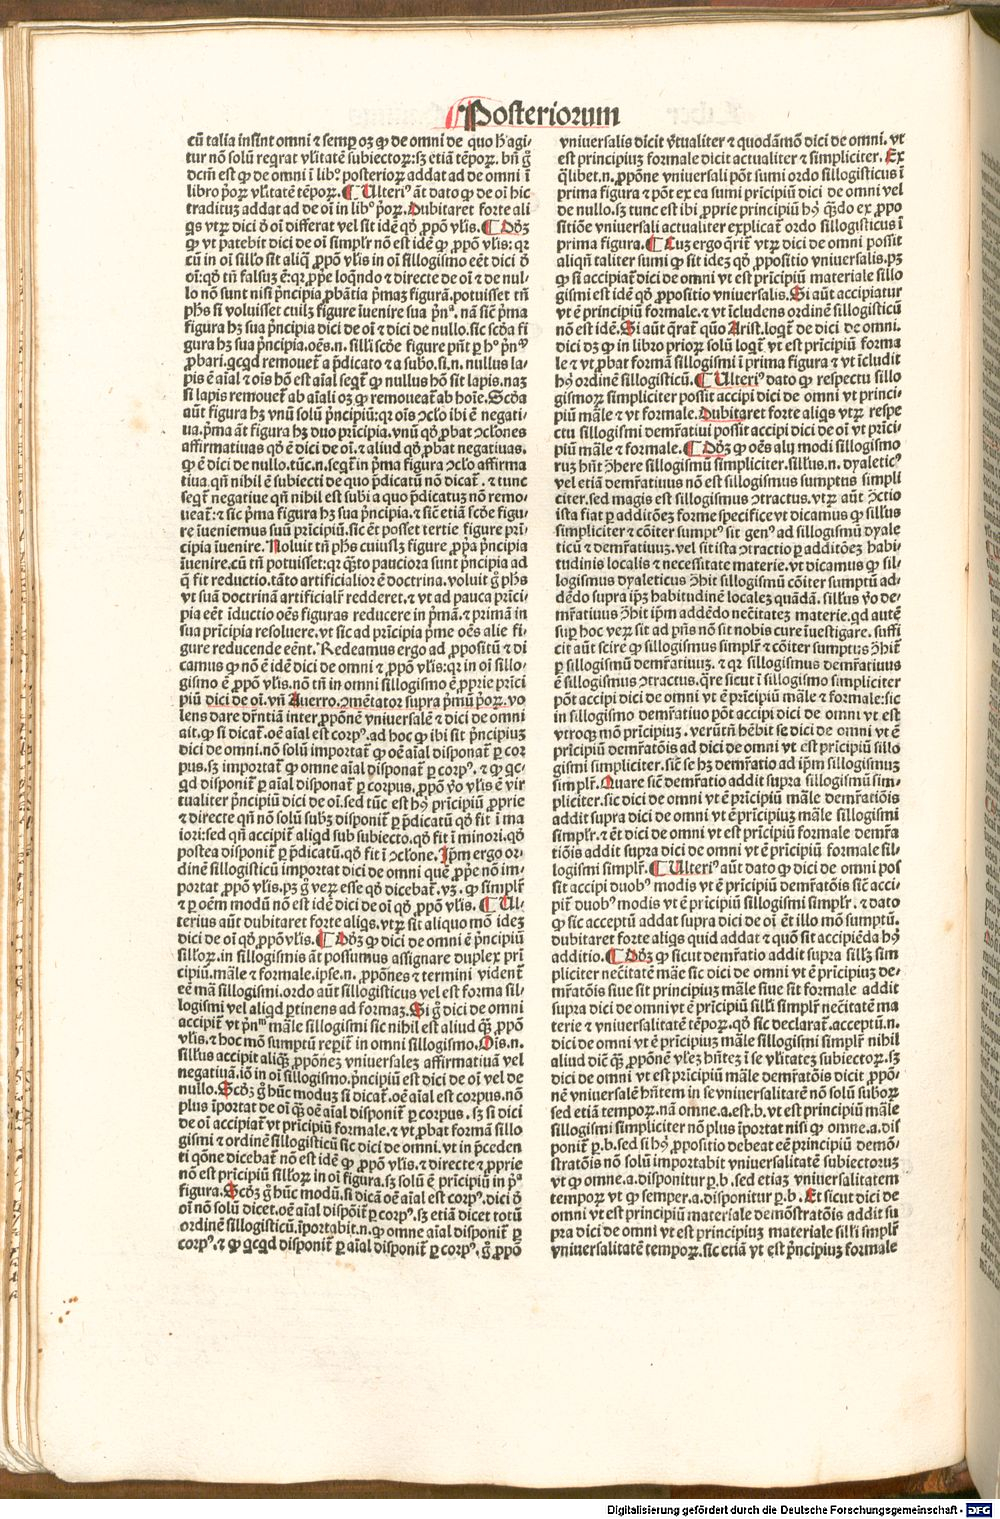 Posteriorum
cū talia insint omni ⁊ semp oꝫ ꝙ de omni de quo hͨ agi-
tur nō solū reqrat vlitatē subiectoꝝ: sꝫ etiā tēpoꝝ. bn̄ gͦ
dcm̄ est ꝙ de omni ī libͦ posterioꝝ addat ad de omni ī
libro pͥoꝝ vlitatē tēpoꝝ. ¶ Ulteriꝰ āt dato ꝙ de oī hic
tradituꝫ addat ad de oī in libͦ pͥoꝝ. Dubitaret forte ali
qs vtꝝ dici dͦ oī differat vel sit idē qͦ ꝓpō vlis. ¶ Dōꝫ
ꝙ vt patebit dici de oī simplr̄ nō est idē ꝙ ꝓpō vlis: qꝛ
cū in oī sillo sit aliq̄ ꝓpō vlis in oī sillogismo eēt dici dͦ
oī: qͦ tn̄ falsuꝫ ē: qꝛ ꝓpͥe loq̄ndo ⁊ directe de oī ⁊ de nul-
lo nō sunt nisi pͥncipia ꝓbātia pͥmaꝫ figurā. potuisset tn̄
phs̄ si voluisset cuilꝫ figure īuenire sua pͥnᵃ. nā sic̄ pͥma
figura hꝫ sua pͥncipia dici de oī ⁊ dici de nullo. sic scd̄a fi
gura hꝫ sua pͥncipia. oēs .n. silli scd̄e figure pn̄t ꝑ hͦ pͥnᵐ
ꝓbari. qcqd remouet̄ a pͥdicato ⁊ a subͦ. si .n. nullus la-
pis ē aīal ⁊ oīs hō est aīal seqt̄ ꝙ nullus hō sit lapis. naꝫ
si lapis remouet̄ ab aīali oꝫ ꝙ remoueat̄ ab hoīe. Scd̄a
aūt figura hꝫ vnū solū pͥncipiū: qꝛ oīs ↄclo ibi ē negati-
ua. pͥma āt figura hꝫ duo pͥncipia. vnū qͦ ꝓbat ↄclones
affirmatiuas qͦ ē dici de oī. ⁊ aliud qͦ ꝓbat negatiuas.
ꝙ ē dici de nullo. tūc .n. seqt̄ in pͥma figura ↄclo affirma
tiua. qn̄ nihil ē subiecti de quo pͥdicatū nō dicat̄. ⁊ tunc
seqt̄ negatiue qn̄ nihil est subi a quo pͥdicatuꝫ nō remo-
ueat̄: ⁊ sic pͥma figura hꝫ sua pͥncipia. ⁊ sic̄ etiā scd̄e figu-
re īueniemus suū pͥncipiū. sic ēt posset tertie figure pri-
cipia īuenire. Noluit tn̄ phs̄ cuiuslꝫ figure ꝓpͥa pͥncipia
īuenire. cū tn̄ potuisset: qꝛ q̄to pauciora sunt pͥncipia ad
q̄ fit reductio. tāto artificialior ē doctrina. voluit gͦ phs̄
vt suā doctrinā artificialr̄ redderet. ⁊ vt ad pauca prīci-
pia eēt īductio oēs figuras reducere in pͥmā. ⁊ primā in
sua prīcipia resoluere. vt sic ad prīcipia pͥme oēs alie fi-
gure reducende eēnt. Redeamus ergo ad ꝓpositū ⁊ di
camus ꝙ nō ē idē dici de omni ⁊ ꝓpō vlis: qꝛ in oī sillo-
gismo ē ꝓpō vlis. nō tn̄ in omni sillogismo ē ꝓprie prīci
piū dici de oī. vn̄ Auerro. ↄmētator supra pͥmū pͥoꝝ. vo
lens dare dr̄ntiā inter ꝓpōnē vniuersalē ⁊ dici de omni
ait. ꝙ si dicat̄. oē aīal est corpꝰ. ad hoc ꝙ ibi sit pͥncipiuꝫ
dici de omni. nō solū importat̄ ꝙ oē aīal disponat̄ ꝑ cor
pus. sꝫ importat̄ ꝙ omne aīal disponat̄ ꝑ corpꝰ. ⁊ ꝙ qc-
qd disponit̄ ꝑ aīal disponat̄ ꝑ corpus. ꝓpō vͦo vlis ē vir
tualiter pͥncipiū dici de oī. sed tūc est hꝰ prīcipiū ꝓprie
⁊ directe qn̄ nō solū subꝫ disponit̄ ꝑ pͥdicatū qͦ fit ī ma
iori: sed qn̄ accipit̄ aliqd sub subiecto. qͦ fit ī minori. qͦ
postea disponit̄ ꝑ pͥdicatū. qͦ fit ī ↄclone. Ip̄m ergo or-
dinē sillogisticū importat dici de omni quē ꝓpͥe nō im-
portat ꝓpō vlis. pꝫ gͦ veꝝ esse qͦ dicebat̄. vꝫ. ꝙ simplr̄
⁊ ꝑ oēm modū nō est idē dici de oī qͦ ꝓpō vlis. ¶ Ul-
terius aūt dubitaret forte aliqs. vtꝝ sit aliquo mō ideꝫ
dici de oī qͦ ꝓpō vlis. ¶ Dōꝫ ꝙ dici de omni ē pͥncipiū
silloꝝ. in sillogismis āt possumus assignare duplex pri
cipiū. māle ⁊ formale. ipse .n. ꝓpōnes ⁊ termini vident̄
eē mā sillogismi. ordo aūt sillogisticus vel est forma sil-
logismi vel aliqd ꝑtinens ad formaꝫ. Si gͦ dici de omni
accipit̄ vt pͥnᵐ māle sillogismi sic nihil est aliud q̄ꝫ ꝓpō
vlis. ⁊ hoc mō sumptū reperit̄ in omni sillogismo. Ois .n.
sillus accipit aliqꝫ ꝓpōneꝫ vniuersaleꝫ affirmatiuā vel
negatiuā. iō in oī sillogismo. pͥncipiū est dici de oī vel de
nullo. Scd̄ꝫ gͦ huc moduꝫ si dicat̄. oē aīal est corpus. nō
plus īportat de oī q̄ꝫ oē aīal disponit̄ ꝑ corpus. sꝫ si dici
de oī accipiat̄ vt prīcipiū formale. ⁊ vt ꝓbat formā sillo
gismi ⁊ ordinē sillogisticū sic dici de omni. vt in pͥceden
ti qōne dicebat̄ nō est idē ꝙ ꝓpō vlis. ⁊ directe ⁊ ꝓprie
nō est prīcipiū silloꝝ in oī figura. sꝫ solū ē prīcipiū in pͥᵃ
figura. Scd̄ꝫ gͦ hūc modū. si dicā oē aīal est corpꝰ. dici dͦ
oī nō solū dicet. oē aīal dispōit̄ ꝑ corpꝰ. sꝫ etiā dicet totū
ordinē sillogisticū. īportabit .n. ꝙ omne aīal disponit̄ ꝑ
corpꝰ. ⁊ ꝙ qcqd disponit̄ ꝑ aīal disponit̄ ꝑ corpꝰ. gͦ ꝓpō
vniuersalis dicit v̄tualiter ⁊ quodāmō dici de omni. vt
est principiuꝫ formale dicit actualiter ⁊ simpliciter. Ex
qlibet .n. ꝓpōne vniuersali pōt sumi ordo sillogisticus ī
prima figura ⁊ pōt ex ea sumi prīcipiū dici de omni vel
de nullo. sꝫ tunc est ibi ꝓprie principiū hꝰ q̄do ex ꝓpo
sitiōe vniuersali actualiter explicat̄ ordo sillogisticus ī
prima figura. ¶ Cuꝫ ergo q̄rit̄ vtꝝ dici de omni possit
aliqn̄ taliter sumi ꝙ sit ideꝫ qͦ ꝓpositio vniuersalis. pꝫ
ꝙ si accipiat̄ dici de omni vt est prīcipiū materiale sillo
gismi est idē qͦ ꝓpositio vniuersalis. Si aūt accipiatur
vt ē principiū formale. ⁊ vt īcludens ordinē sillogisticū
nō est idē. Si aūt q̄rat̄ quō Arist. loqt̄ de dici de omni.
dici dꝫ ꝙ in libro prioꝝ solū loqt̄ vt est prīcipiū forma
le ⁊ vt ꝓbat formā sillogismi ī prima figura ⁊ vt īcludit
hꝰ ordinē sillogisticū. ¶ Ulteriꝰ dato ꝙ respectu sillo
gismoꝝ simpliciter possit accipi dici de omni vt princi-
piū māle ⁊ vt formale. Dubitaret forte aliqs vtꝝ respe
ctu sillogismi demr̄atiui possit accipi dici de oī vt prīci-
piū māle ⁊ formale. ¶ Dōꝫ ꝙ oēs alij modi sillogismo
ruꝫ hn̄t ↄ̄here sillogismū simpliciter. sillus .n. dyaleticꝰ
vel etiā demr̄atiuus nō est sillogismus sumptus simpli
citer. sed magis est sillogismus ↄtractus. vtꝝ aūt ↄctio
ista fiat ꝑ additōeꝫ forme specifice vt dicamus ꝙ sillus
simpliciter ⁊ cōiter sumptꝰ sit genꝰ ad sillogismū dyale
ticū ⁊ demr̄atiuuꝫ. vel sit ista ↄtractio ꝑ additōeꝫ habi-
tudinis localis ⁊ necessitate materie. vt dicamus ꝙ sil-
logismus dyaleticus ↄ̄hit sillogismū cōiter sumptū ad-
dēdo supra ip̄ꝫ habitudinē localeꝫ quādā. sillus vͦo de-
mr̄atiuus ↄ̄hit ip̄m addēdo nec̄itateꝫ materie. qd autē
suꝑ hoc veꝝ sit ad pn̄s nō sit nobis cure īuestigare. suffi
cit aūt scire ꝙ sillogismus simplr̄ ⁊ cōiter sumptus ↄ̄hit̄
ꝑ sillogismū demr̄atiuuꝫ. ⁊ qꝛ sillogismus demr̄atiuus
ē sillogismus ↄtractus. q̄re sicut ī sillogismo simpliciter
pōt accipi dici de omni vt ē prīcipiū māle ⁊ formale: sic
in sillogismo demr̄atiuo pōt accipi dici de omni vt est
vtroqꝫ mō prīcipiuꝫ. verūtn̄ hēbit se dici de omni vt ē
prīcipiū demr̄atōis ad dici de omni vt est prīcipiū sillo
gismi simpliciter. sic̄ se hꝫ demr̄atio ad ip̄m sillogismuꝫ
simplr̄. Quare sic̄ demr̄atio addit supra sillogismū sim-
pliciter. sic dici de omni vt ē prīcipiū māle demr̄atiōis
addit supra dici de omni vt ē prīcipiuꝫ māle sillogismi
simplr̄. ⁊ ēt dici de omni vt est prīcipiū formale demr̄a
tiōis addit supra dici de omni vt ē prīcipiū formale sil-
logismi simplr̄. ¶ Ulteriꝰ aūt dato ꝙ dici de omni pos
sit accipi duobꝰ modis vt ē prīcipiū demr̄atōis sic̄ acci-
pit̄ duobꝰ modis vt ē prīcipiū sillogismi simplr̄. ⁊ dato
ꝙ sic acceptū addat supra dici de oī ēt illo mō sumptū.
dubitaret forte aliqs quid addat ⁊ quō sit accipiēda hꝰ
additio. ¶ Dōꝫ ꝙ sicut demr̄atio addit supra sillꝫ sim
pliciter nec̄itatē māe sic dici de omni vt ē prīcipiuꝫ de-
mr̄atōis siue sit principiuꝫ māle siue sit formale addit
supra dici de omni vt ē prīcipiū silli simplr̄ nec̄itatē ma
terie ⁊ vniuersalitatē tēpoꝝ. qͦ sic declarat̄. acceptū .n.
dici de omni vt ē prīcipiuꝫ māle sillogismi simplr̄ nihil
aliud dic̄ q̄ꝫ. ꝓpōnē vleꝫ hn̄teꝫ ī se vlitateꝫ subiectoꝝ. sꝫ
dici de omni vt est prīcipiū māle demr̄atōis dicit ꝓpō-
nē vniuersalē hn̄tem in se vniuersalitatē nō solū suboꝝ
sed etiā tempoꝝ. nā omne .a. est .b. vt est principiū māle
sillogismi simpliciter nō plus īportat nisi ꝙ omne .a. dis
ponit̄ ꝑ .b. sed si hꝰ ꝓpositio debeat eē prīcipiū demō-
stratōis nō solū importabit vniuersalitatē subiectoruꝫ
vt ꝙ omne .a. disponitur ꝑ .b. sed etiaꝫ vniuersalitatem
tempoꝝ vt ꝙ semper .a. disponitur ꝑ .b. Et sicut dici de
omni vt est principiuꝫ materiale demōstratōis addit su
pra dici de omni vt est principiuꝫ materiale silli simplr̄
vniuersalitatē tempoꝝ. sic etiā vt est pͥncipiuꝫ formale
Digitalisierung gefördert durch die Deutsche Forschungsgemeinschaft - DFG